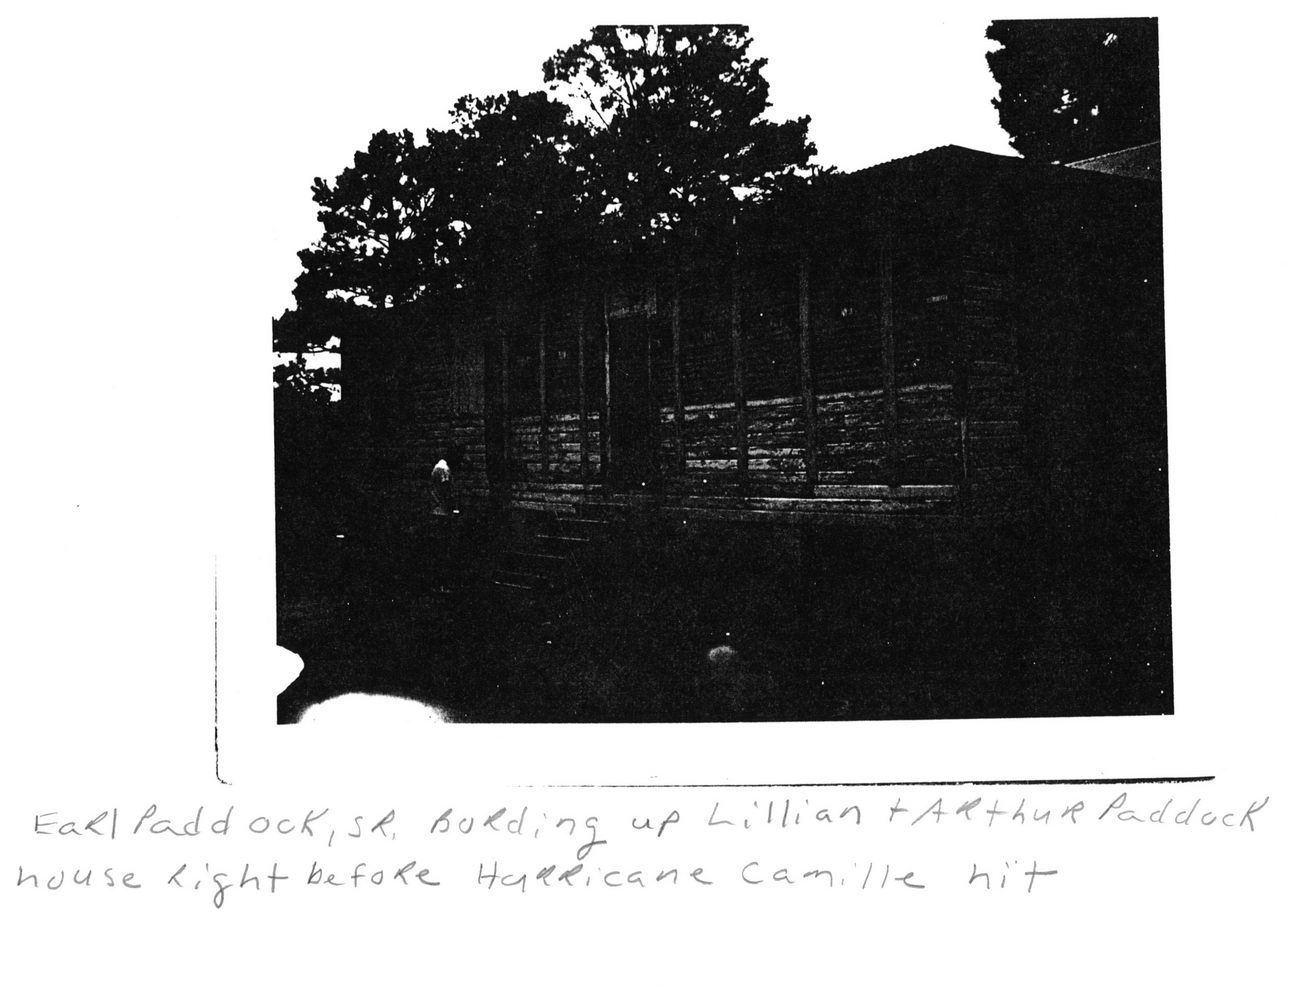 Earl Paddock, SR. Bording up Lillian + Arthur Paddock
house right before Hurricane Camille hit